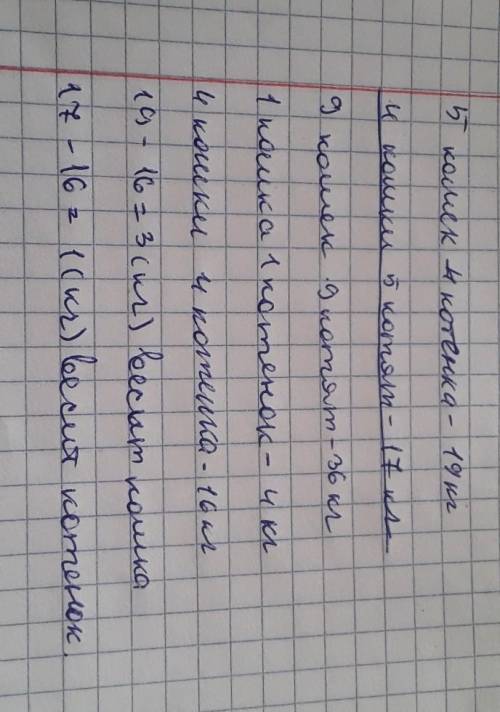 5 кошек 4 котенка - 19 кг
4 кошки 5 котят - 17 кг
9 кошек 9 котят - 36 кг
1 кошка 1 котенок - 4 кг
4 кошки 4 котенка - 16 кг
19 - 16 = 3 (кг) весит кошка
17 - 16 = 1 (кг) весит котенок.